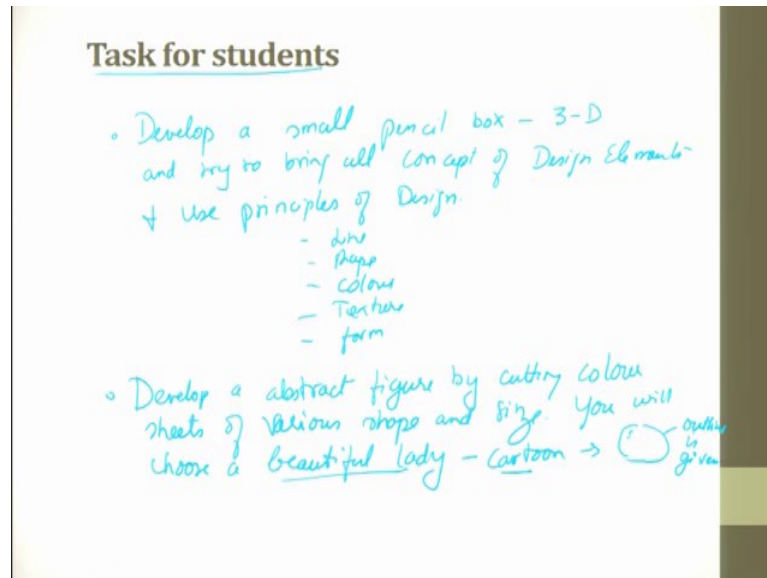 Task for students
• Develop a small pencil box - 3-D
and try to bring all concept of Design Elements
& use principles of Design.
- Line
- Shape
- Colour
- Texture
- form
• Develop a abstract figure by cutting colour
sheets of various shape and size. You will
choose a beautiful lady - cartoon → outline
is
given